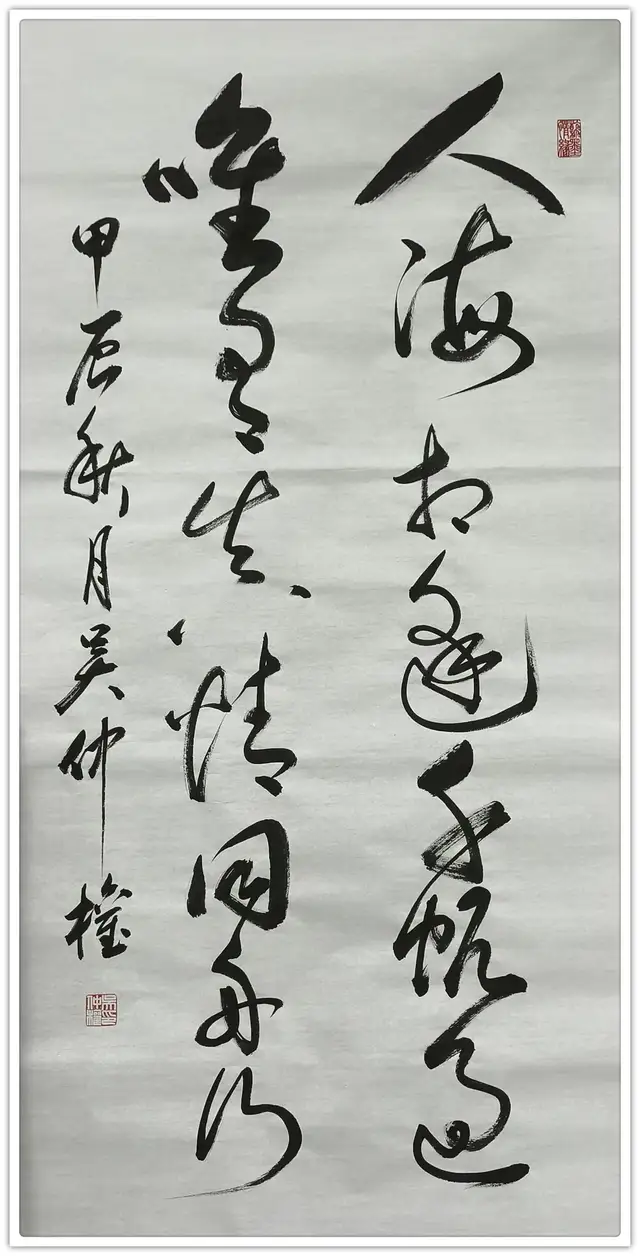 人海相逢千帆过
唯有真情同舟行
甲辰秋月吴仲權